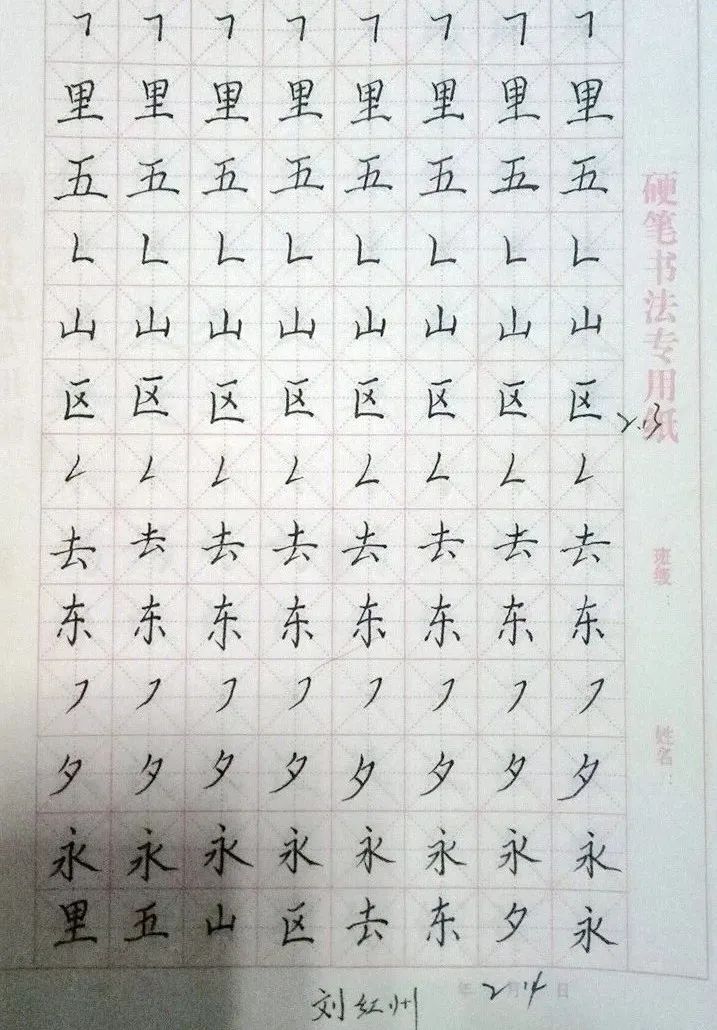 ㇕ ㇕ ㇕ ㇕ ㇕ ㇕ ㇕ ㇕
里 里 里 里 里 里 里 里
五 五 五 五 五 五 五 五
㇗ ㇗ ㇗ ㇗ ㇗ ㇗ ㇗ ㇗
山 山 山 山 山 山 山 山
区 区 区 区 区 区 区 区
㇜ ㇜ ㇜ ㇜ ㇜ ㇜ ㇜ ㇜
去 去 去 去 去 去 去 去
东 东 东 东 东 东 东 东
㇇ ㇇ ㇇ ㇇ ㇇ ㇇ ㇇ ㇇
夕 夕 夕 夕 夕 夕 夕 夕
永 永 永 永 永 永 永 永
里 五 山 区 去 东 夕 永
硬笔书法专用纸
2.13
班级
姓名
年2月14日
刘红州